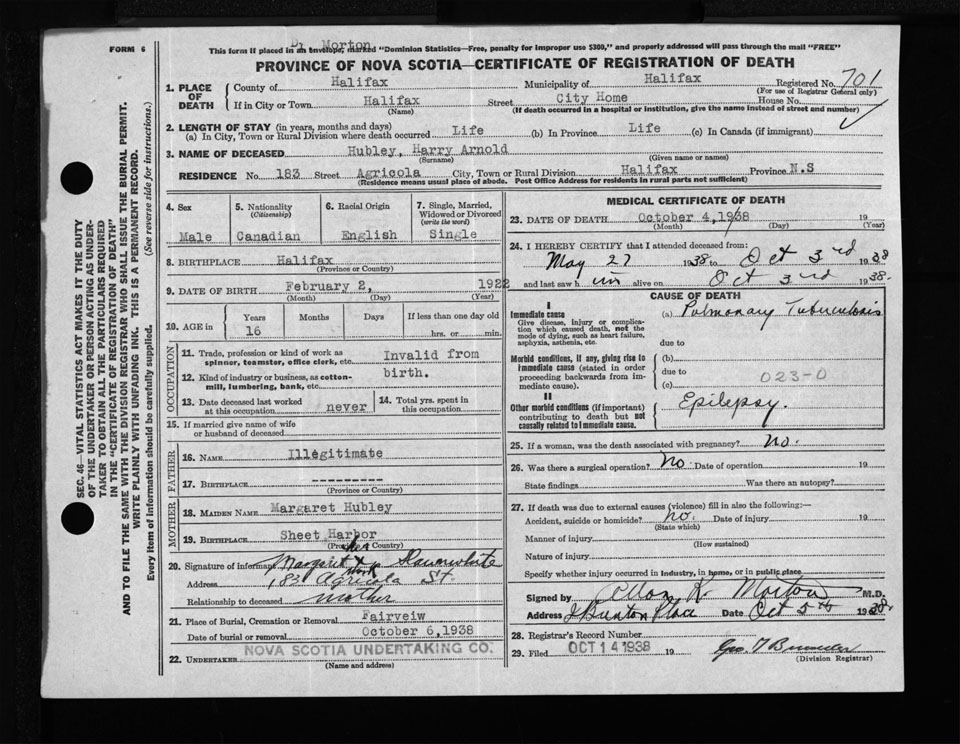 Dr Morton
FORM 6
This form if placed in an envelope, marked "Dominion Statistics—Free, penalty for improper use $300," and properly addressed will pass through the mail "FREE"
PROVINCE OF NOVA SCOTIA—CERTIFICATE OF REGISTRATION OF DEATH
1. PLACE OF DEATH
County of Halifax Municipality of Halifax Registered No. 701
(For use of Registrar General only)
If in City or Town Halifax Street City Home House No.
(Name) (If death occurred in a hospital or institution, give the name instead of street and number)
2. LENGTH OF STAY (in years, months and days)
(a) In City, Town or Rural Division where death occurred Life (b) In Province Life (c) In Canada (if immigrant)
3. NAME OF DECEASED Hubley, Harry Arnold
(Surname) (Given name or names)
RESIDENCE No. 183 Street Agricola City, Town or Rural Division Halifax Province N.S
(Residence means usual place of abode. Post Office Address for residents in rural parts not sufficient)
4. Sex
Male
5. Nationality
(Citizenship)
Canadian
6. Racial Origin
English
7. Single, Married, Widowed or Divorced
(write the word)
Single
8. BIRTHPLACE Halifax
(Province or Country)
9. DATE OF BIRTH February 2, 1922
(Month) (Day) (Year)
10. AGE in Years Months Days If less than one day old
16 hrs. or min.
OCCUPATION
11. Trade, profession or kind of work as spinner, teamster, office clerk, etc. Invalid from
12. Kind of industry or business, as cotton-mill, lumbering, bank, etc. birth.
13. Date deceased last worked at this occupation never
14. Total yrs. spent in this occupation
15. If married give name of wife or husband of deceased
FATHER
16. NAME Illegitimate
17. BIRTHPLACE ----------
(Province or Country)
MOTHER
18. MAIDEN NAME Margaret Hubley
19. BIRTHPLACE Sheet Harbor
(Province or Country)
20. Signature of informant Margaret X
her
mark
Address 183 Agricola St
Relationship to deceased mother
21. Place of Burial, Cremation or Removal Fairveiw
Date of burial or removal October 6, 1938
22. UNDERTAKER NOVA SCOTIA UNDERTAKING CO.
(Name and address)
MEDICAL CERTIFICATE OF DEATH
23. DATE OF DEATH October 4, 1938 19
(Month) (Day) (Year)
24. I HEREBY CERTIFY that I attended deceased from:
May 27 1938 to Oct 3rd 1938
and last saw him alive on Oct 3rd 1938.
CAUSE OF DEATH
I
Immediate cause
Give disease, injury or complication which caused death, not the mode of dying, such as heart failure, asphyxia, asthenia, etc.
(a) Pulmonary Tuberculosis
due to
Morbid conditions, if any, giving rise to immediate cause (stated in order proceeding backwards from immediate cause).
(b)
due to
(c) 023-0
II
Other morbid conditions (if important) contributing to death but not causally related to immediate cause.
Epilepsy.
25. If a woman, was the death associated with pregnancy? no.
26. Was there a surgical operation? no Date of operation 19
State findings Was there an autopsy?
27. If death was due to external causes (violence) fill in also the following:—
Accident, suicide or homicide? no. Date of injury 19
(State which)
Manner of injury
(How sustained)
Nature of injury
Specify whether injury occurred in industry, in home, or in public place
Signed by Allan R. Morton M.D.
Address Date Oct 5th 1938.
28. Registrar's Record Number
29. Filed OCT 14 1938 19
(Division Registrar)
SEC. 46—VITAL STATISTICS ACT MAKES IT THE DUTY
OF THE UNDERTAKER OR PERSON ACTING AS UNDER-
TAKER TO OBTAIN ALL THE PARTICULARS REQUIRED
IN THE "CERTIFICATE OF REGISTRATION OF DEATH"
AND TO FILE THE SAME WITH THE DIVISION REGISTRAR WHO SHALL ISSUE THE BURIAL PERMIT.
WRITE PLAINLY WITH UNFADING INK. THIS IS A PERMANENT RECORD.
Every item of information should be carefully supplied. (See reverse side for instructions.)